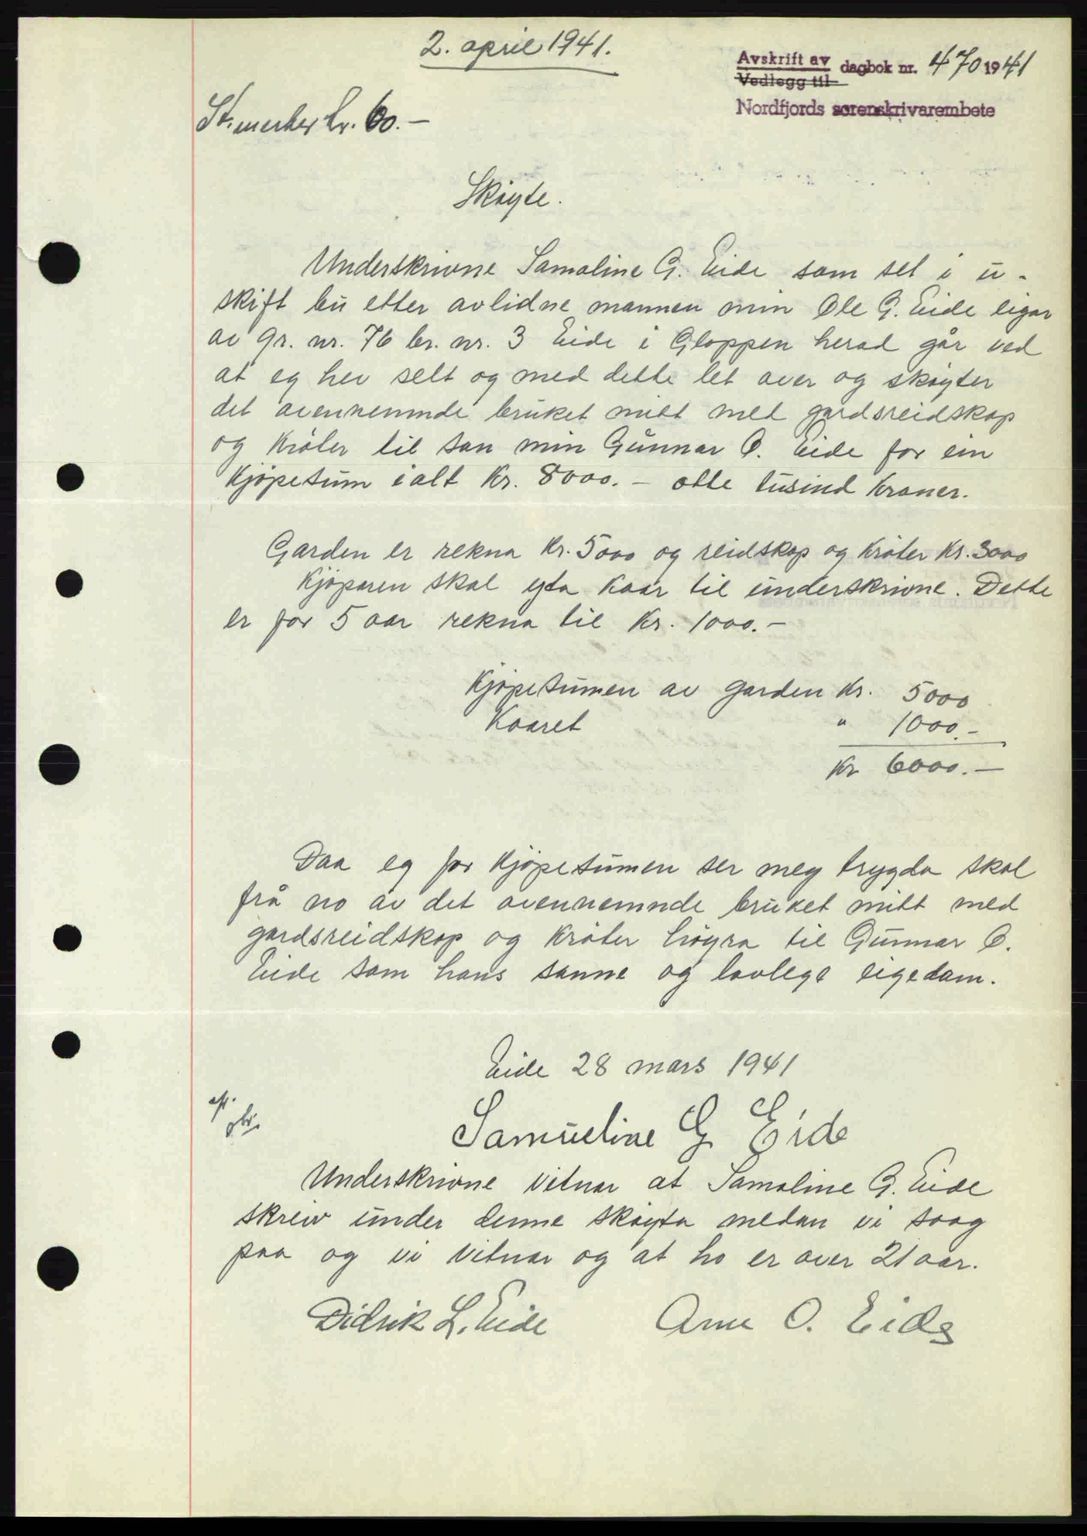 2. april 1941.
Avskrift av
Vedlegg til
dagbok nr. 470 1941
Nordfjords sorenskrivarembete
St.merker kr. 60.-
Skøyte.
Underskrivne Samoline G. Eide som set i u-
skift bu etter avlidne mannen min Ole G. Eide eigar
av gr. nr. 76 br. nr. 3 Eide i Gloppen herad går ved
at eg hev selt og med dette let over og skøyter
det ovennemnde bruket mitt med gardsreidskap
og krøter til son min Gunnar O. Eide for ein
kjøpesum ialt kr. 8000.- otte tusind kroner.
Garden er rekna kr. 5000 og reidskap og krøter kr. 3000
Kjøparen skal yta kaar til underskrivne. Dette
er for 5 aar rekna til kr. 1000.-
Kjøpesumen av garden kr. 5000
Kaaret " 1000.-
Kr 6000.-
Daa eg for kjøpesumen ser meg trygda skal
frå no av det ovennemnde bruket mitt med
gardsreidskap og krøter høyra til Gunnar O.
Eide som hans sanne og lovlege eigedom.
Eide 28 mars 1941
Samueline G Eide
Underskrivne vitnar at Samoline G. Eide
skreiv under denne skøyta medan vi saag
paa og vi vitnar og at ho er over 21 aar.
Didrik L. Eide Arne O. Eide